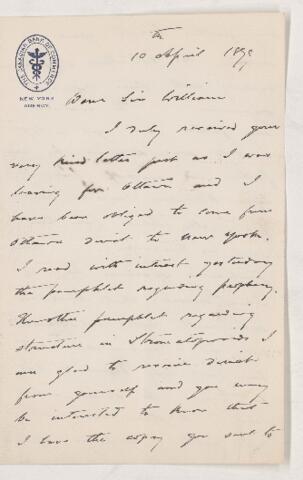 THE CANADIAN BANK OF COMMERCE
NEW YORK
AGENCY.
10th April 189
Dear Sir William
I duly received your
very kind letter just as I was
leaving for Ottawa and I
have been obliged to come from
Ottawa direct to New York.
I read with interest yesterday
the pamphlet regarding prophecy.
The other pamphlet regarding
structure in Stromatoporoids I
am glad to receive direct
from yourself and you may
be interested to know that
I have the copy you sent to